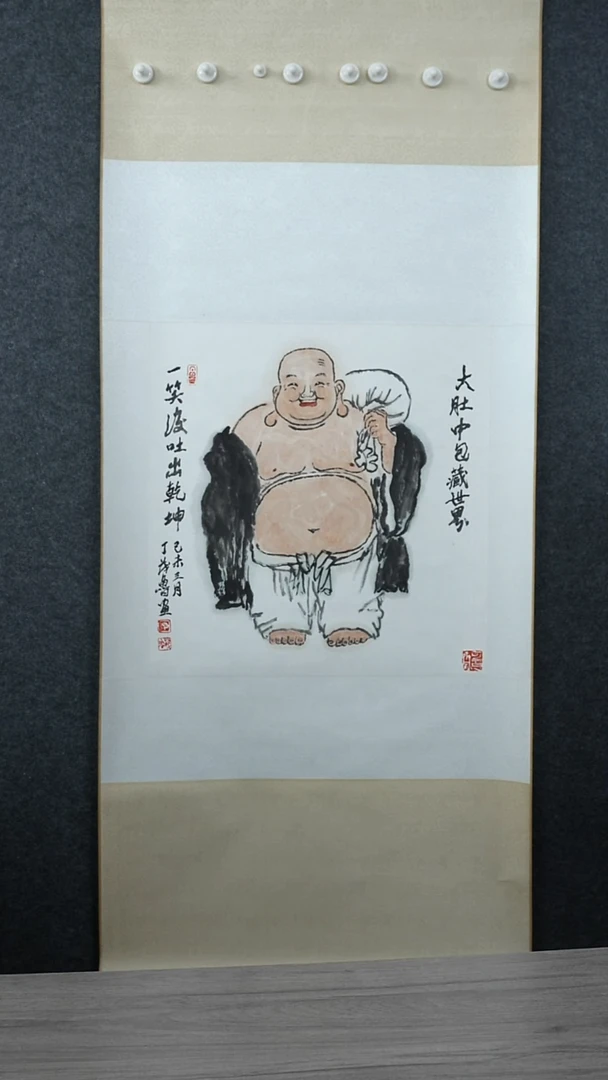 大肚中包藏世界
一笑后吐出乾坤
己未三月
丁茂鲁画